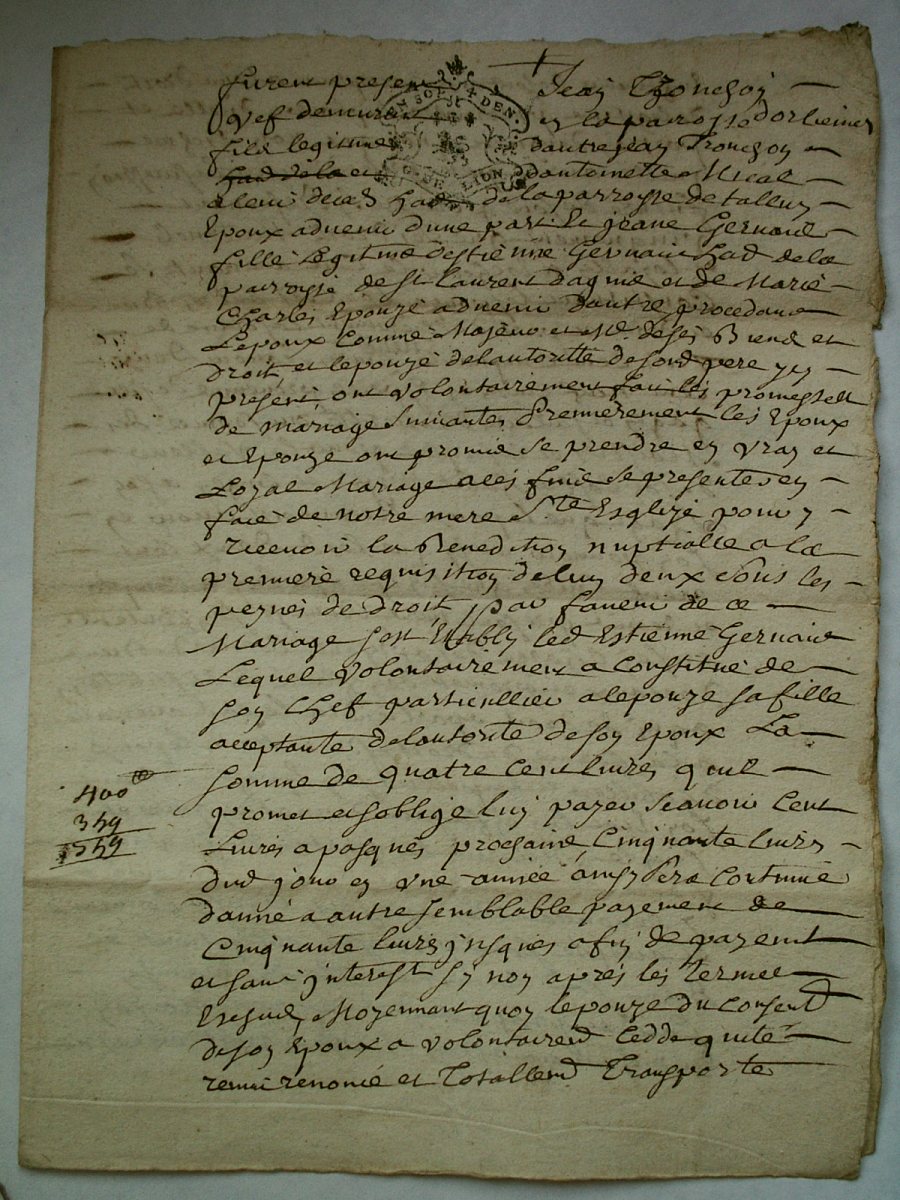 furent present Jean Tronchon
vef demurant en la paroisse dorlienes
fils legitime dautre Jean Tronchon
hab de la et dantoinette Nicol
a leur deced hab de la parroysse de talluy
Epoux advenir dune part Et Jeane Gervaid
fille legitime destienne Gervaid hab de la
parroysse de st laurent dagnie et de Marie
Charles Epouze advenir dautre procedant
Lepoux Comme Majeur et Me de ses Biend et
droit et lepouze de lautoritte de sond pere yci
present, ont volontairement fait les promesses
de mariage suivantes Premierement les Epoux
et Epouze ont promis se prendre en vray et
Loyal Mariage a ces fins se presenteren
face de notre mere Ste Esglize pour y
recevoir la Benediction nuptialle a la
premiere requisition de lun deux sous les
peynes de droit, par faveur de ce
Mariage sest Etably led Estienne Gervaid
Lequel volontairement a Constitué de
son Chef particullier a lepouze sa fille
acceptante de lautorite de son Epoux La
somme de quatre Cent livres quil
400
promet et soblige luy payer scavoir Cent
359
Livres a pasques prochaine, Cinquante livres
559
dud jour en une année ainsy sera Continué
danné a autre semblable payement de
Cinquante livres jusques a fin de payemt
et sans jnterest sy non apres les termes
Escheus, Moyennant quoy lepouze du Consentt
de son Epoux a volontairemt cedde quité
remis renoncé et Totallemt Transporté
SOL DEN. LION